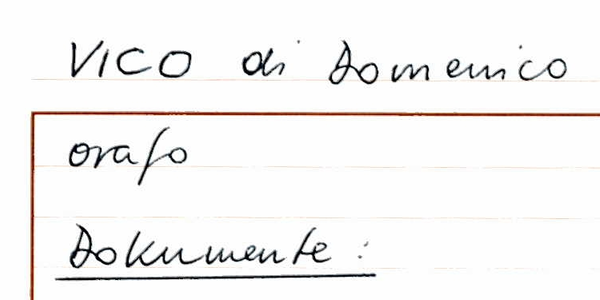 VICO di Domenico
orafo
Dokumente: